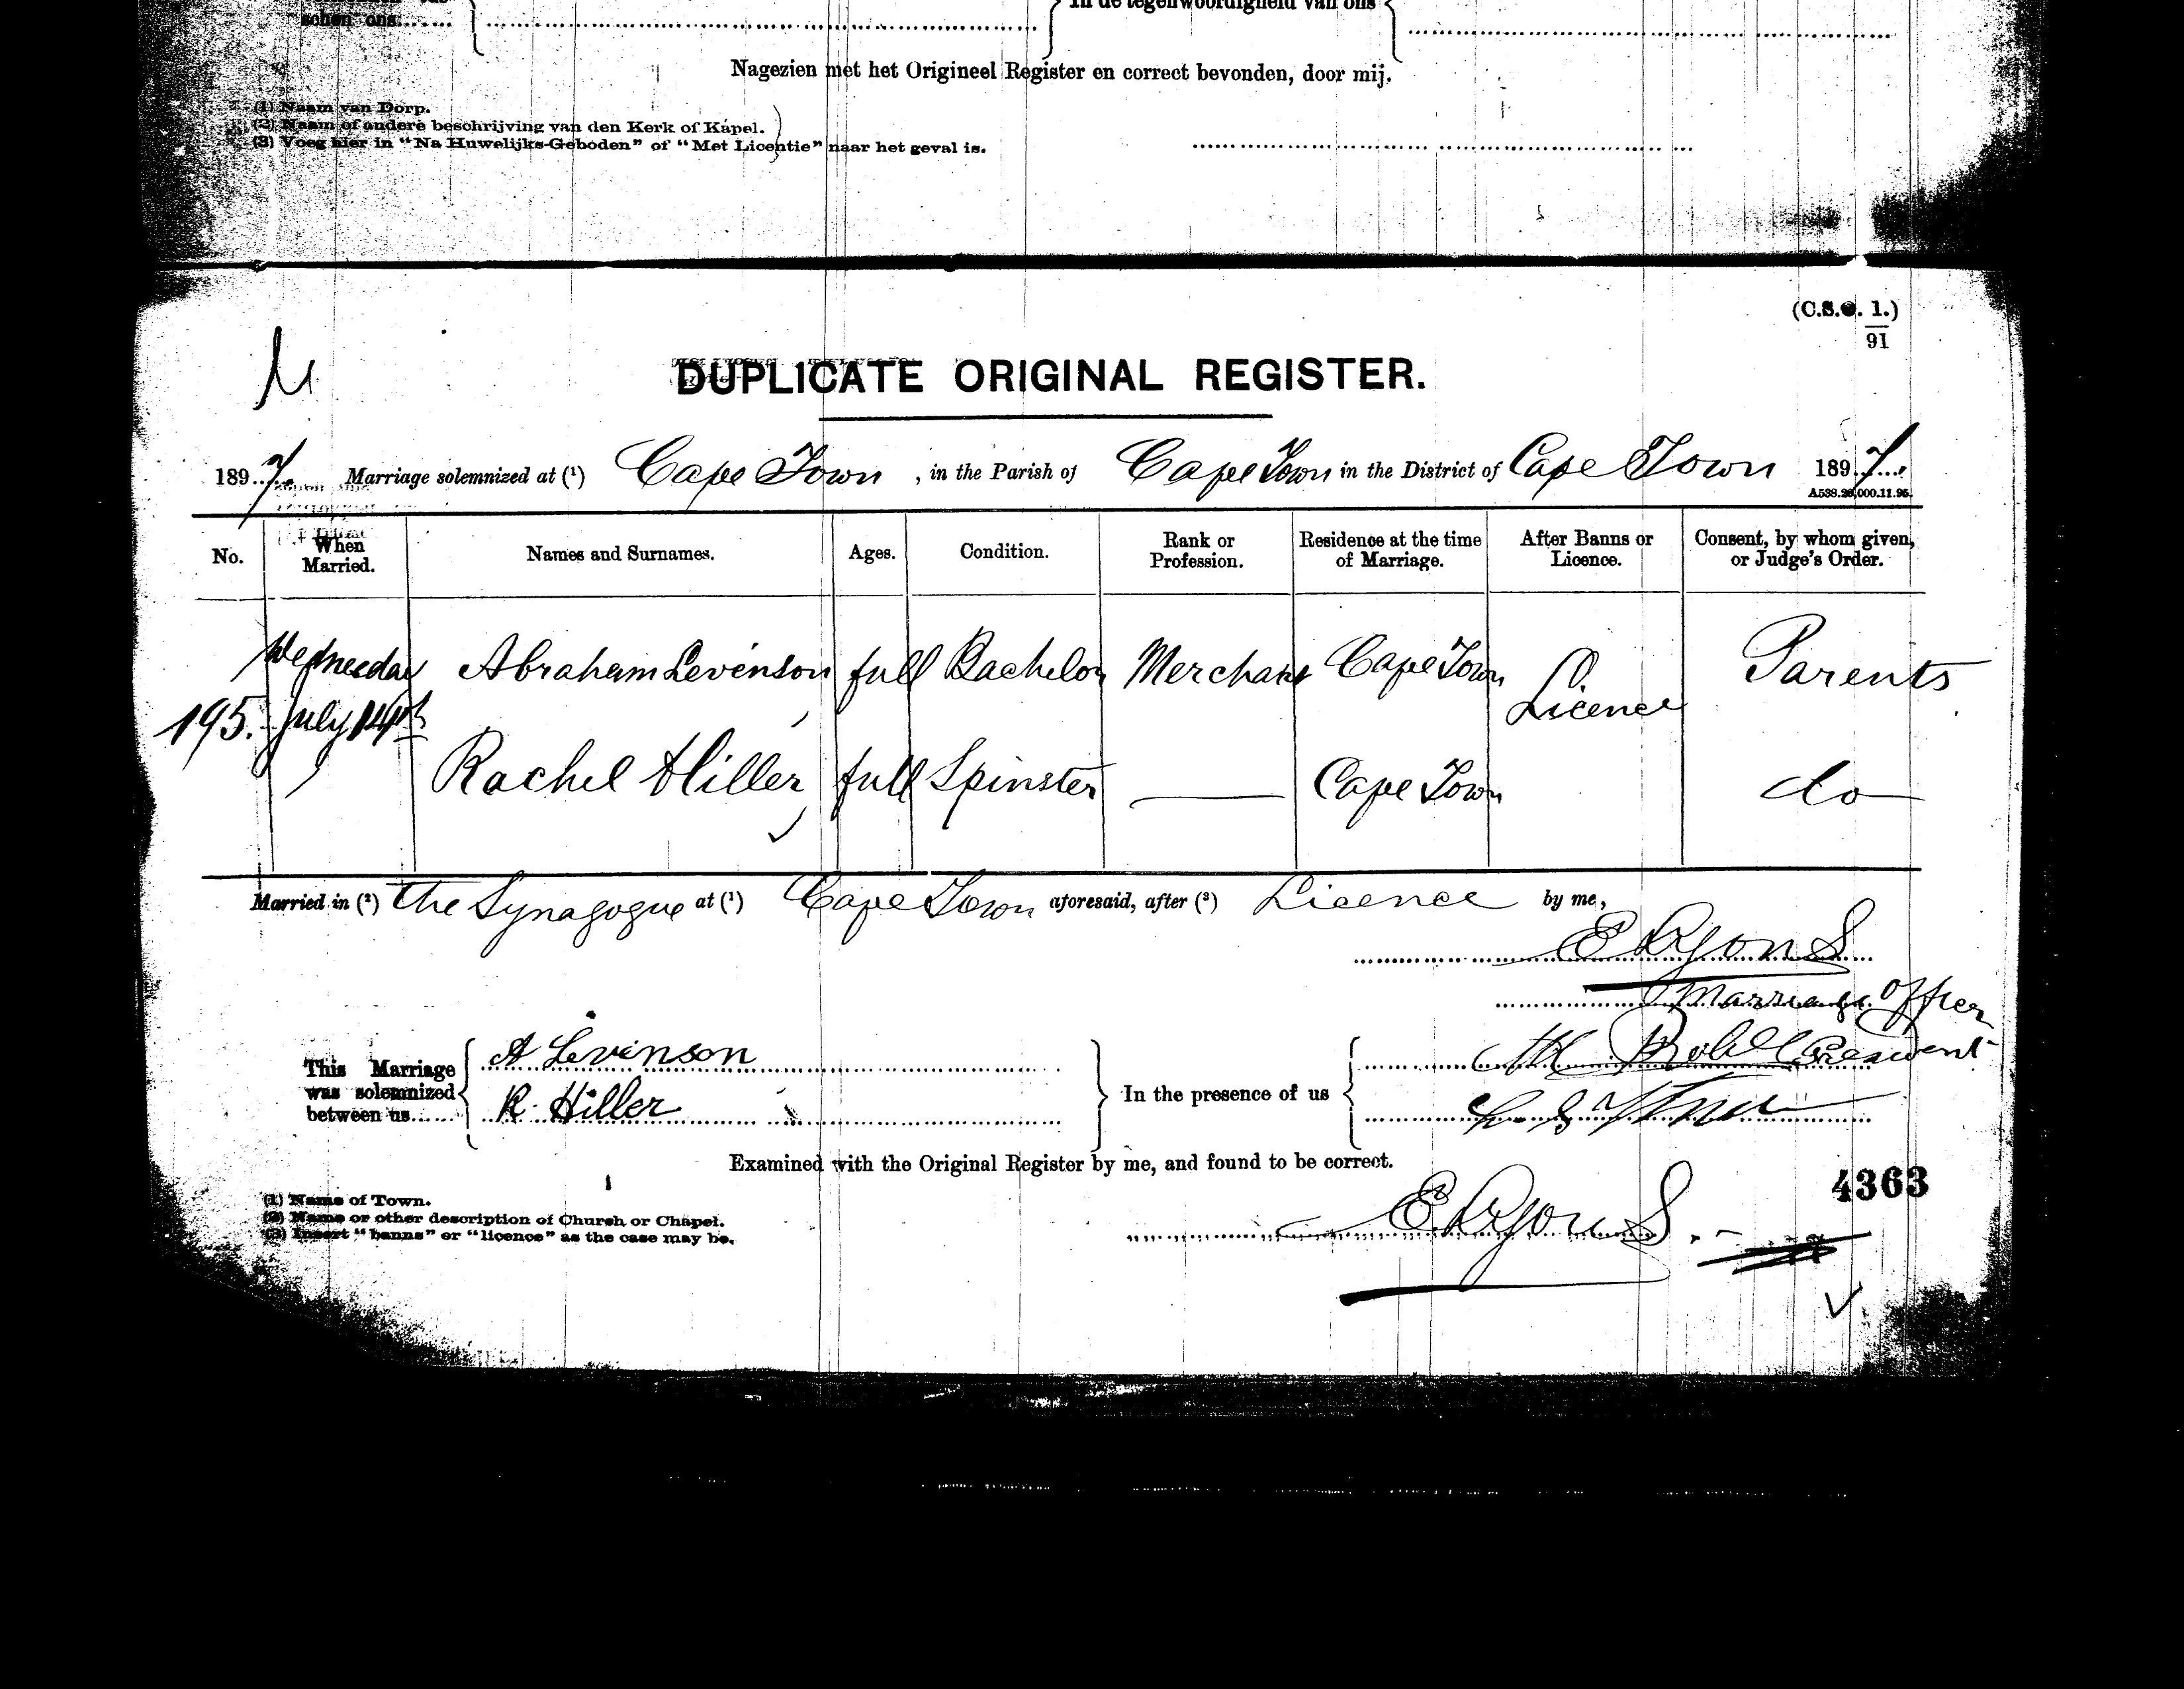 schen ons.......
In de tegenwoordigheid van ons
Nagezien met het Origineel Register en correct bevonden, door mij.
(1) Naam van Dorp.
(2) Naam of andere beschrijving van den Kerk of Kapel.
(3) Voeg hier in "Na Huwelijks-Geboden" of "Met Licentie" naar het geval is.
(C.S.O. 1.)
91
M
DUPLICATE ORIGINAL REGISTER.
1897. Marriage solemnized at (1) Cape Town, in the Parish of Cape Town in the District of Cape Town 1897.
No. When Married. Names and Surnames. Ages. Condition. Rank or Profession. Residence at the time of Marriage. After Banns or Licence. Consent, by whom given, or Judge's Order.
Wednesday Abraham Levenson full Bachelor Merchant Cape Town Licence Parents
195. July 14th
Rachel Hiller full Spinster Cape Town do
Married in (2) the Synagogue at (1) Cape Town aforesaid, after (3) Licence by me,
E Lyons
Marriage Officer
This Marriage was solemnized between us...... A Levinson
R. Hiller
In the presence of us
President
Examined with the Original Register by me, and found to be correct.
4363
E Lyons.
(1) Name of Town.
(2) Name or other description of Church or Chapel.
(3) Insert "banns" or "licence" as the case may be.